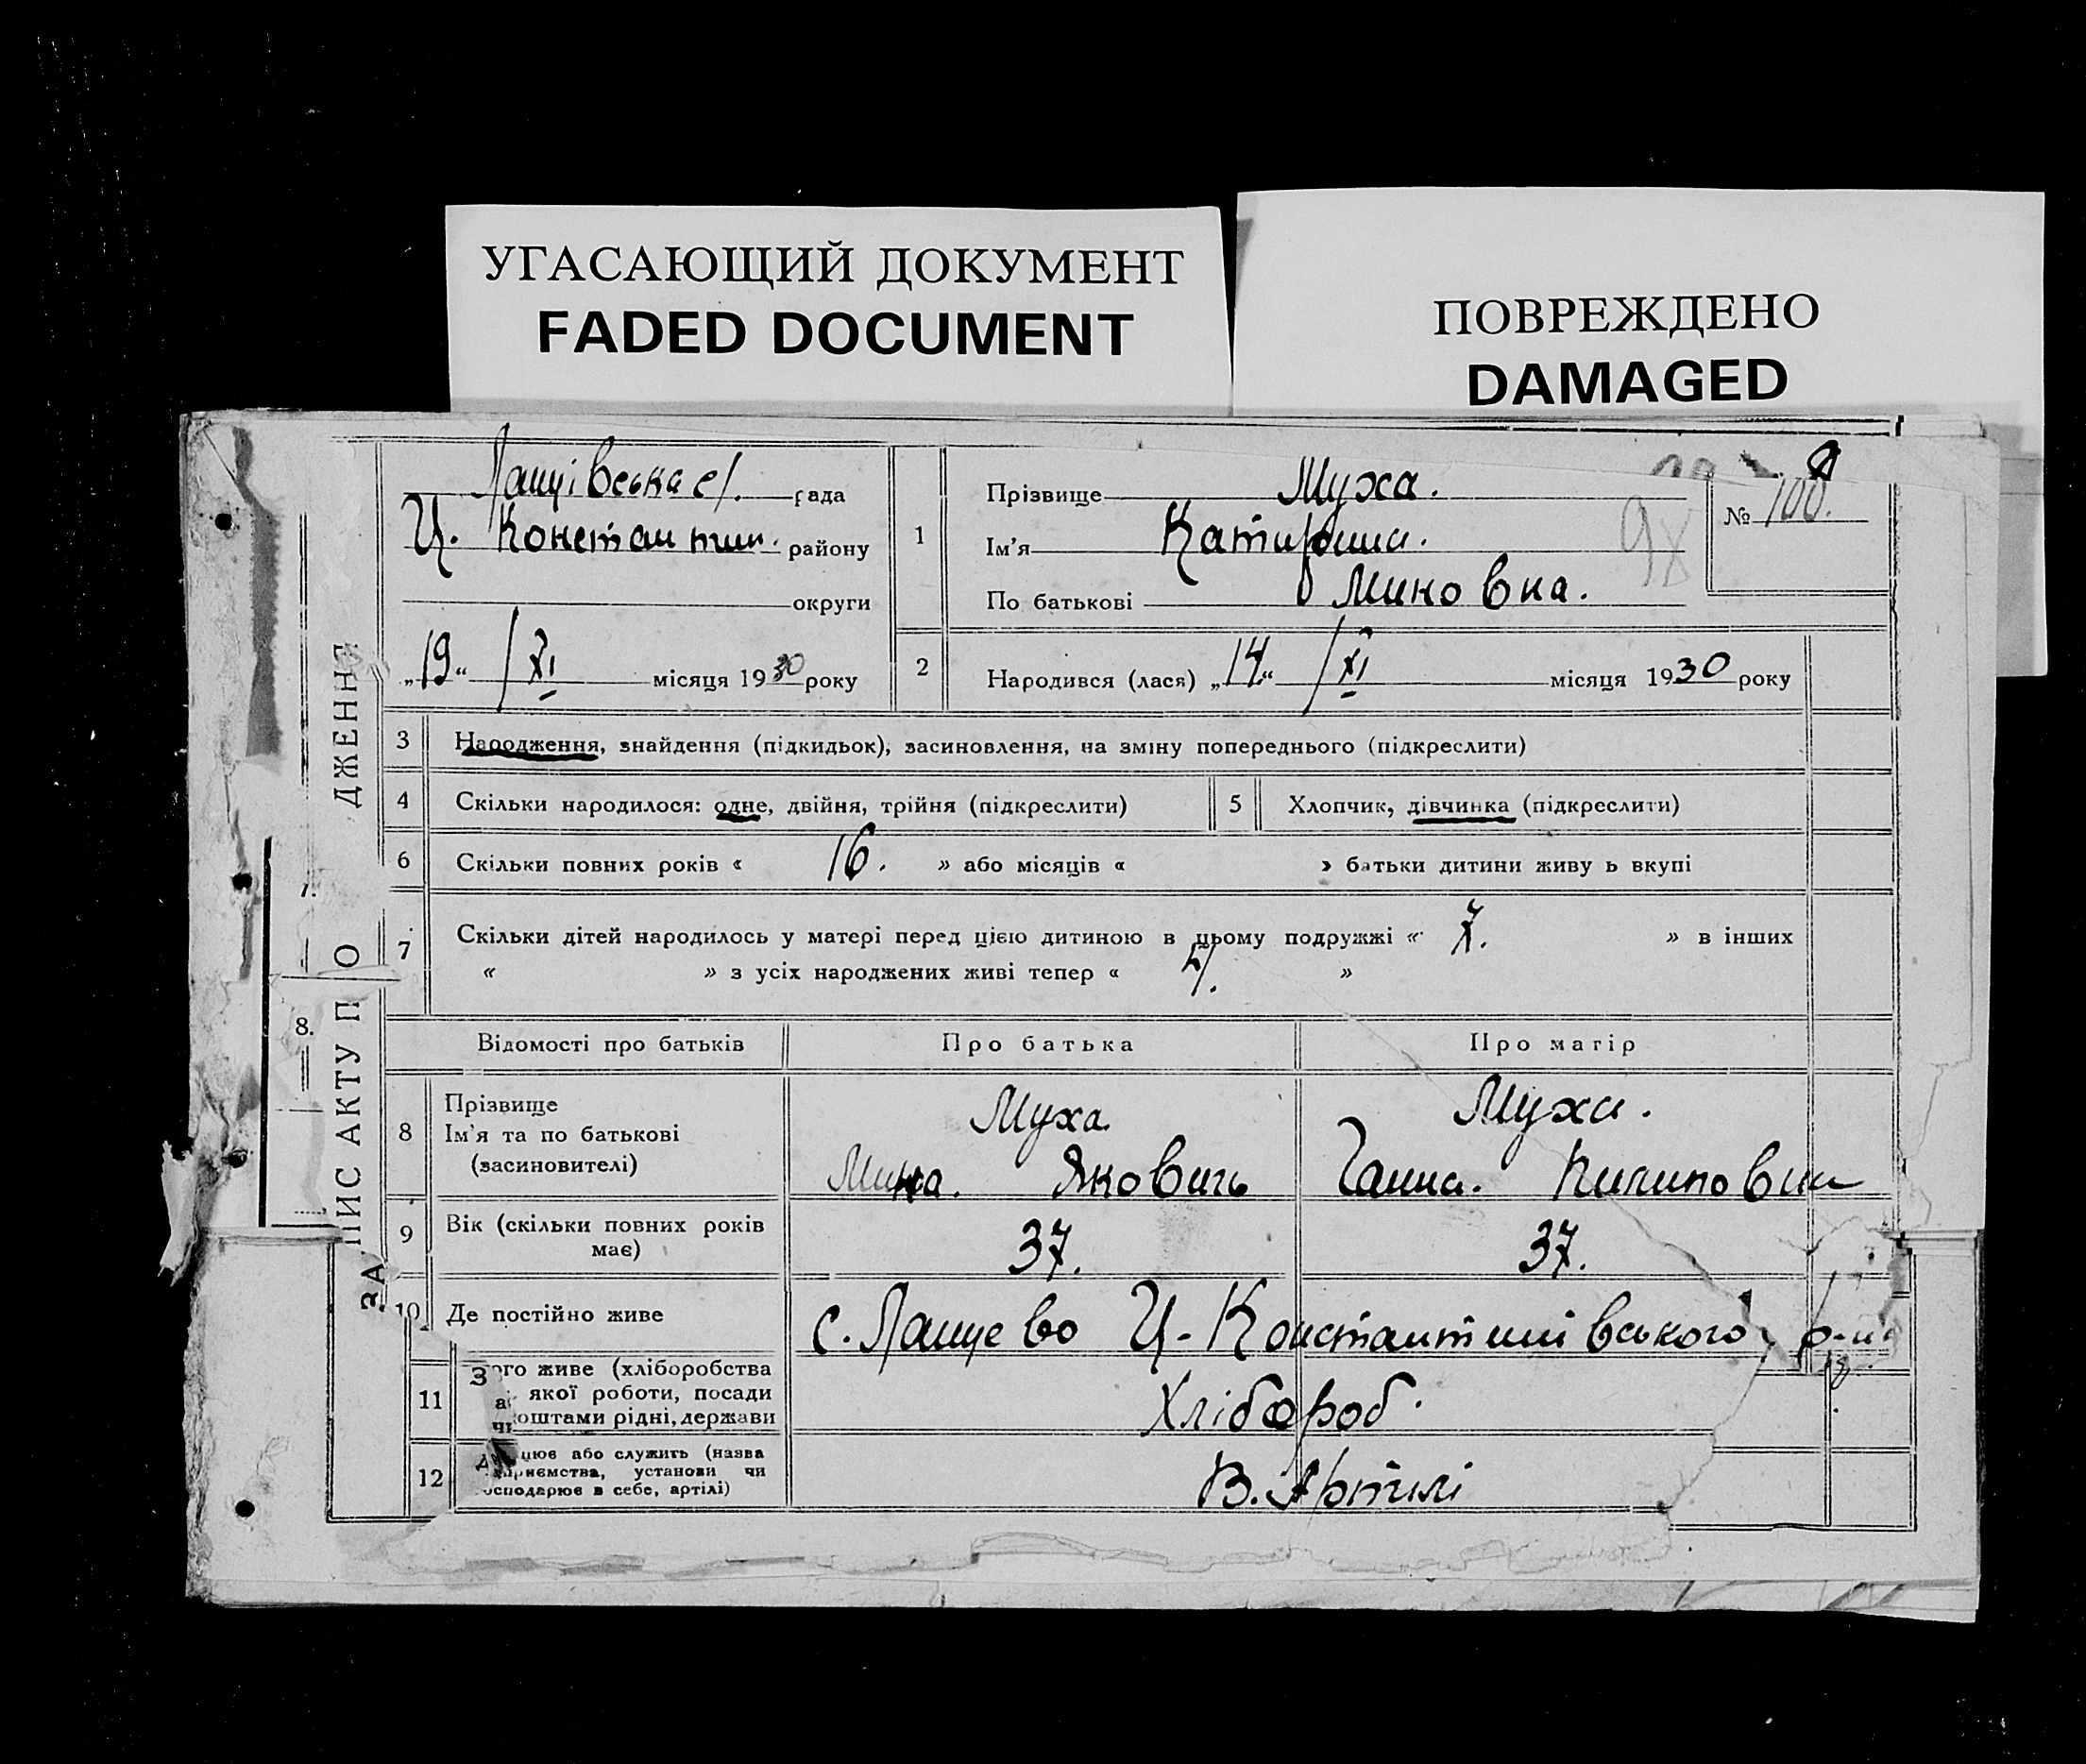 УГАСАЮЩИЙ ДОКУМЕНТ
FADED DOCUMENT
ПОВРЕЖДЕНО
DAMAGED
ЗА ПИС АКТУ П О ДЖЕННЯ
7.
8.
Лащівська с/. рада
Ц. Констант шн. району
округи
„19“ / XI місяця 1930 року
1
Прізвище Муха.
Ім'я Катирина.
По батькові Миновна.
№ 100.
98
2
Народився (лася) „14“ / XI місяця 1930 року
3 Народження, знайдення (підкидьок), засиновлення, на зміну попереднього (підкреслити)
4 Скільки народилося: одне, двійня, трійня (підкреслити)
5 Хлопчик, дівчинка (підкреслити)
6 Скільки повних років « 16. » або місяців « » батьки дитини живу ь вкупі
7 Скільки дітей народилось у матері перед цією дитиною в цьому подружжі « 7. » в інших
« » з усіх народжених живі тепер « 4. »
Відомості про батьків Про батька Про матір
8 Прізвище
Ім'я та по батькові
(засиновителі)
Муха
Мина. Яковичь
Муха.
Ганна. Пилиповна
9 Вік (скільки повних років
має)
37. 37.
10 Де постійно живе с. Лащево Ц-Константинівського р-н
11 З ого живе (хліборобства
а якої роботи, посади
чи оштами рідні, держави
Хлібороб.
12 цює або служить (назва
приємства, установи чи
осподарює в себе, артілі)
В. Артилі